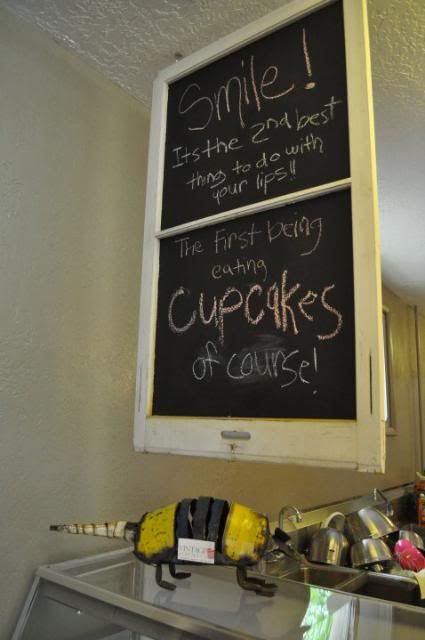 Smile!
Its the 2nd best
thing to do with
your lips!!
The First being
eating
Cupcakes
of course!
VINTAGE